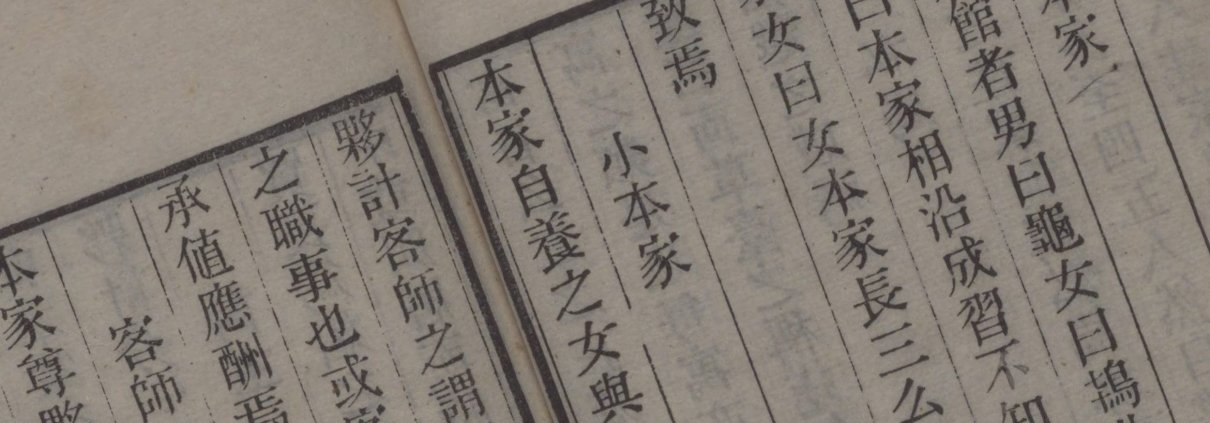 本家
館者男曰龜女曰鴇
曰本家相沿成習不知
女曰女本家長三么
致焉
小本家
本家自養之女與
夥計客師之謂
之職事也或客
承值應酬焉
客師
本家尊夥